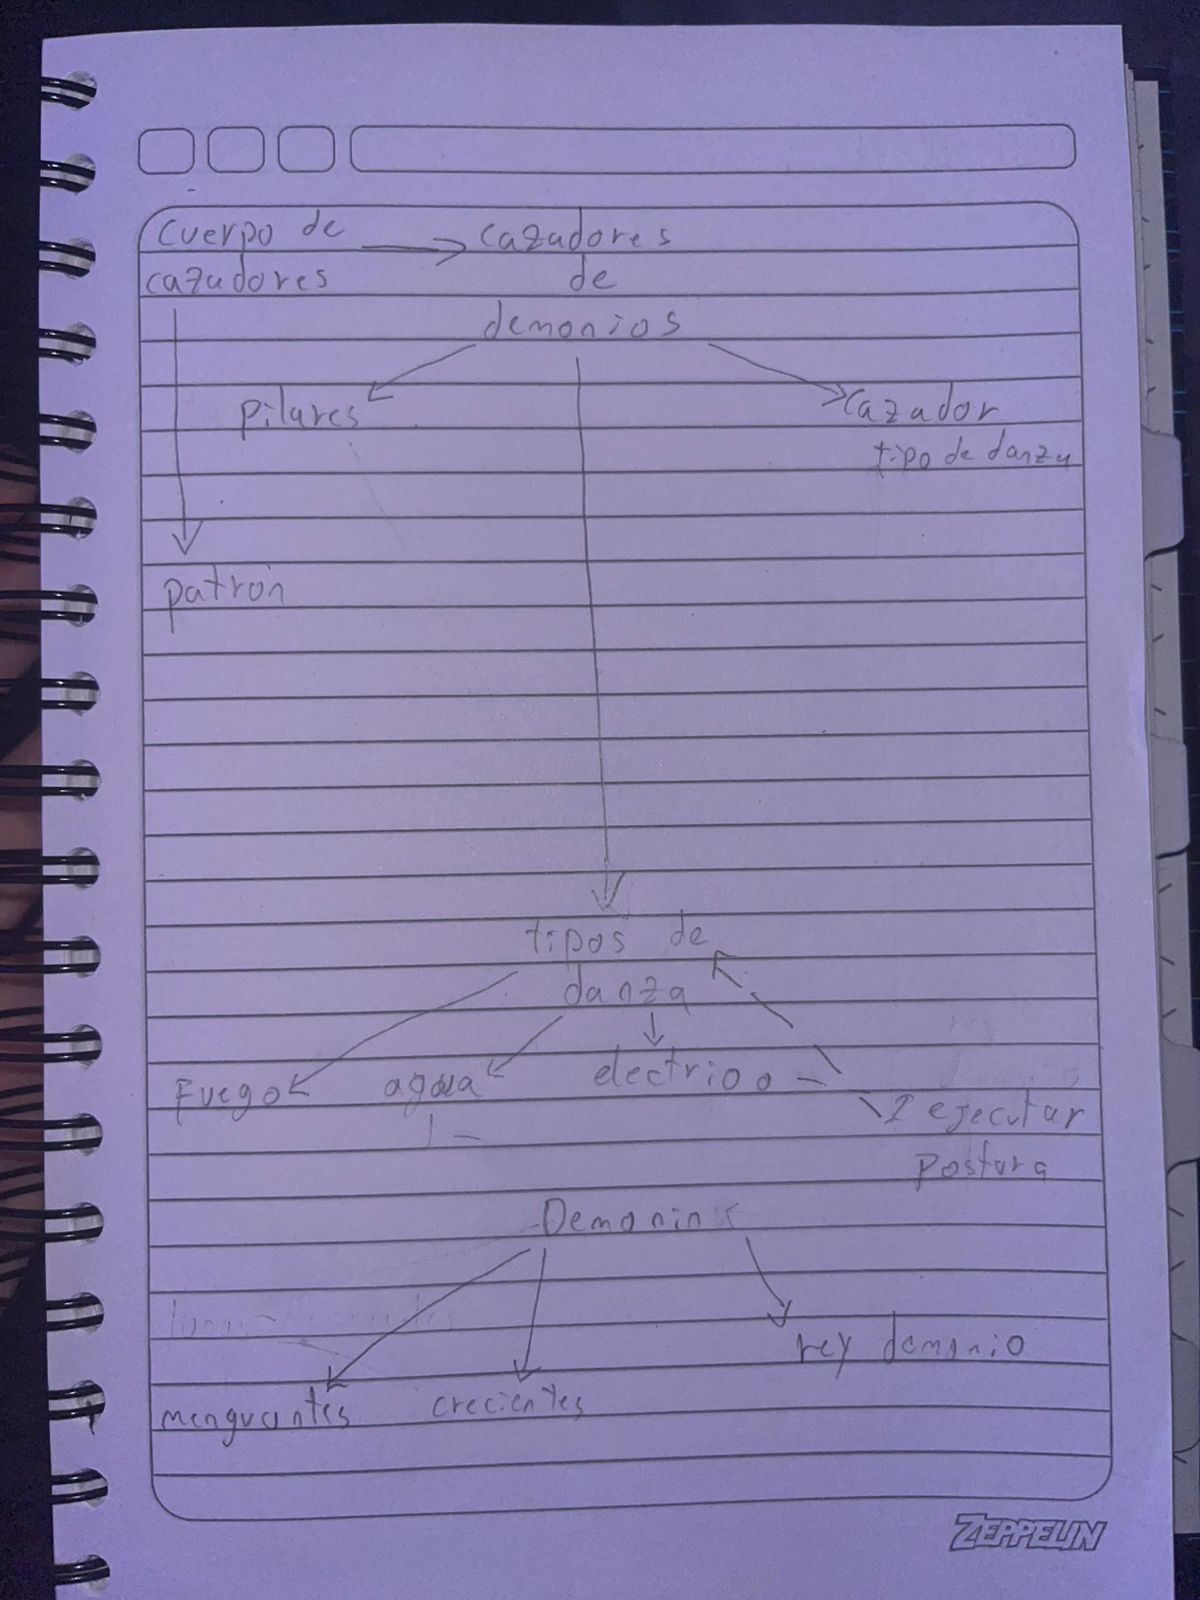 cuerpo de
cazadores
cazadores
de
demonios
pilares
cazador
tipo de danza
patron
tipos de
danza
Fuego
agua
electrio o
ejecutar
postura
Demonios
rey demonio
menguantes
crecientes
ZEPPELIN